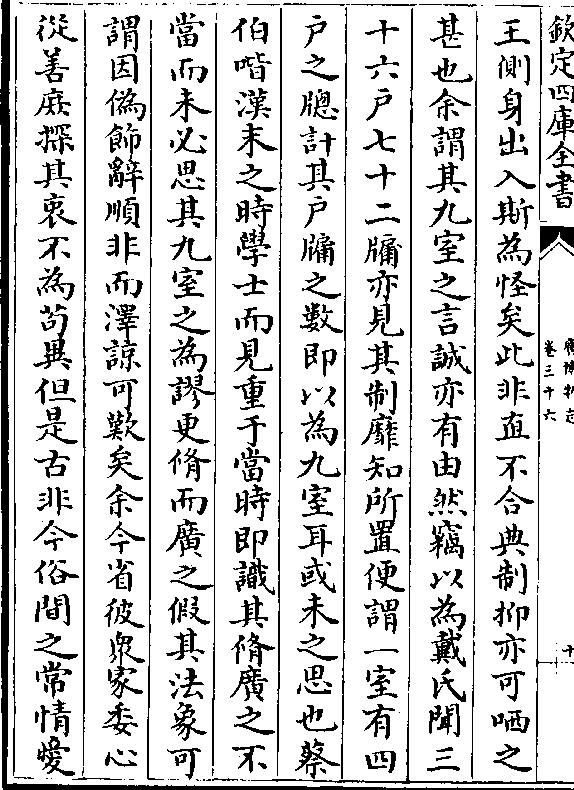 欽定四庫全書
廣博物志
卷三十六
十
王側身出入斯為怪矣此非直不合典制抑亦可哂之
甚也余謂其九室之言誠亦有由然竊以為戴氏聞三
十六戶七十二牖亦見其制靡知所置便謂一室有四
戶之牕計其戶牖之數即以為九室耳或未之思也蔡
伯喈漢末之時學士而見重于當時即識其脩廣之不
當而未必思其九室之為謬更脩而廣之假其法象可
謂因偽飾辭順非而澤諒可歎矣余今省彼衆家委心
從善庶探其衷不為苟異但是古非今俗間之常情愛